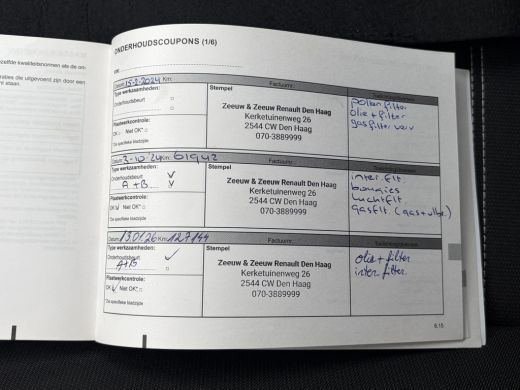 zelfde kwaliteitsnormen als de on-
raties die uitgevoerd zijn door een
nt staan.
ONDERHOUDSCOUPONS (1/6)
VIN:
Datum: 15-2-2024 Km: Factuurnr.:
Type werkzaamheden: Stempel
Onderhoudsbeurt □
□
Plaatwerkcontrole:
OK □ Niet OK* □
*Zie specifieke bladzijde
Zeeuw & Zeeuw Renault Den Haag
Kerketuinenweg 26
2544 CW Den Haag
070-3889999
pollen filter
olie + filter
gasfilter verv
Datum: 3-10-24 Km: 61942 Factuurnr.:
Type werkzaamheden: Stempel
Onderhoudsbeurt
A+B
Plaatwerkcontrole:
OK Niet OK* □
*Zie specifieke bladzijde
Zeeuw & Zeeuw Renault Den Haag
Kerketuinenweg 26
2544 CW Den Haag
070-3889999
inter.filt
bougies
luchtfilt
gasfilt (gas+vlb.)
Datum: 13.01.26 Km: 127144 Factuurnr.:
Type werkzaamheden: Stempel
Onderhoudsbeurt
A+B
Plaatwerkcontrole:
OK Niet OK* □
*Zie specifieke bladzijde
Zeeuw & Zeeuw Renault Den Haag
Kerketuinenweg 26
2544 CW Den Haag
070-3889999
olie + filter
inter filter
6.15